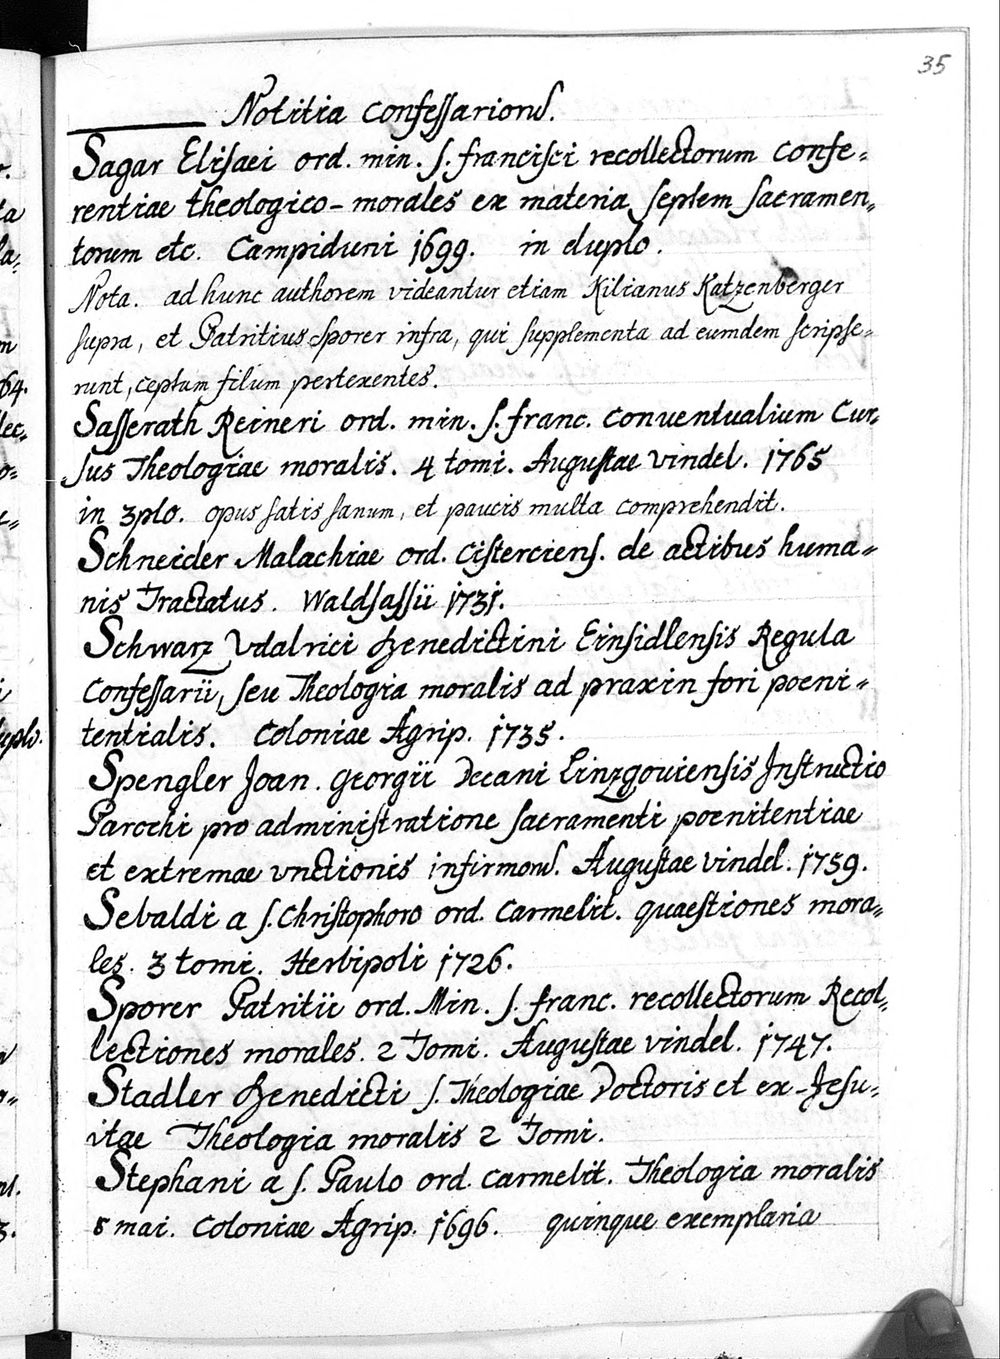 35
Notitia confessarior̄.
Sagar Elisaei ord. min. s. francisci recollectorum confe=
rentiae theologico-morales ex materia septem sacramen=
torum etc. Campiduni 1699. in duplo.
Nota. ad hunc authorem videantur etiam Kilianus Katzenberger
supra, et Patritius Sporer infra, qui supplementa ad eumdem scripse=
runt, ceptum filum pertexentes.
Sasserath Reineri ord. min. s. franc. conventualium Cur=
sus Theologiae moralis. 4 tomi. Augustae vindel. 1765
in 3plo. opus satis sanum, et paucis multa comprehendit.
Schneider Malachiae ord. cisterciens. de actibus huma=
nis Tractatus. Waldsassii 1731.
Schwarz Udalrici Benedictini Einsidlensis Regula
Confessarii, seu Theologia moralis ad praxin fori poeni=
tentialis. Coloniae Agrip. 1735.
Spengler Joan. Georgii Decani Linzgoviensis Instructio
Parochi pro administratione sacramenti poenitentiae
et extremae unctionis infirmor̄. Augustae vindel. 1759.
Sebaldi a s. Christophoro ord. carmelit. quaestiones mora=
les. 3 tomi. Herbipoli 1726.
Sporer Patritii ord. Min. s. franc. recollectorum Recol=
lectiones morales. 2 Tomi. Augustae vindel. 1747.
Stadler Benedicti s. Theologiae Doctoris et ex-Jesu=
itae Theologia moralis 2 Tomi.
Stephani a s. Paulo ord. carmelit. Theologia moralis
8 mai. Coloniae Agrip. 1696. quinque exemplaria